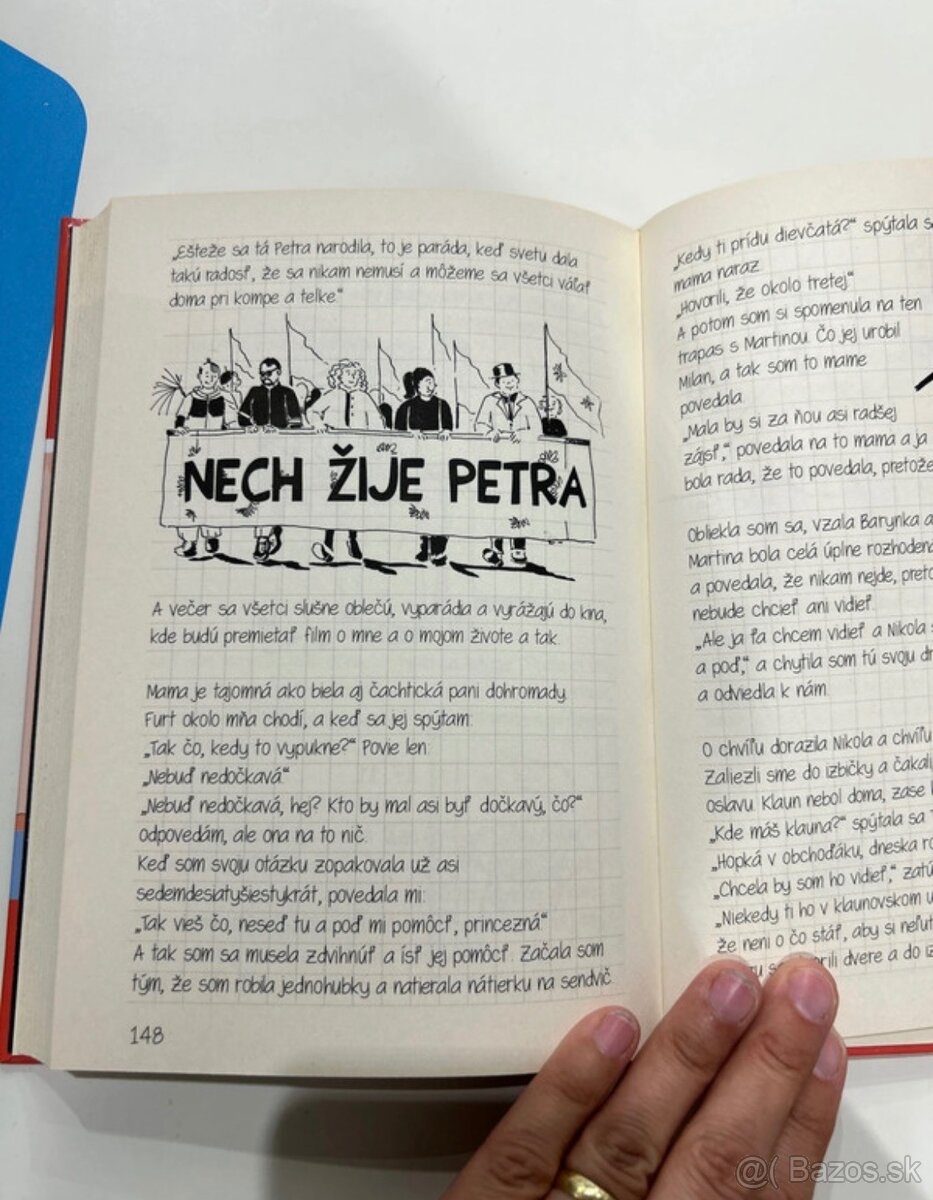 „Ešteže sa tá Petra narodila, to je paráda, keď svetu dala
takú radosť, že sa nikam nemusí a môžeme sa všetci váľať
doma pri kompe a telke“
NECH ŽIJE PETRA
A večer sa všetci slušne oblečú, vyparádia a vyrážajú do kina,
kde budú premietať film o mne a o mojom živote a tak.
Mama je tajomná ako biela aj čachtická pani dohromady.
Furt okolo mňa chodí, a keď sa jej spýtam:
„Tak čo, kedy to vypukne?“ Povie len:
„Nebuď nedočkavá“
„Nebuď nedočkavá, hej? Kto by mal asi byť dočkavý, čo?“
odpovedám, ale ona na to nič.
Keď som svoju otázku zopakovala už asi
sedemdesiatyšiestykrát, povedala mi:
„Tak vieš čo, neseď tu a poď mi pomôcť, princezná“
A tak som sa musela zdvihnúť a ísť jej pomôcť. Začala som
tým, že som robila jednohubky a natierala nátierku na sendvič
148
„Kedy ti prídu dievčatá?“ spýtala
mama naraz.
„Hovorili, že okolo tretej“
A potom som si spomenula na ten
trapas s Martinou. Čo jej urobil
Milan, a tak som to mame
povedala.
„Mala by si za ňou asi radšej
zájsť,“ povedala na to mama a ja
bola rada, že to povedala, pretože
Obliekla som sa, vzala Barynka a
Martina bola celá úplne rozhodená
a povedala, že nikam nejde,
nebude chcieť ani vidieť.
„Ale ja ťa chcem vidieť a Nikola
a poď,“ a chytila som tú svoju
a odviedla k nám.
O chvíľu dorazila Nikola a chvíľu
Zaliezli sme do izbičky a čakali,
oslavu. Klaun nebol doma, zase
„Kde máš klauna?“ spýtala sa
„Hopká v obchoďáku, dneska
„Chcela by som ho vidieť,“
„Niekedy ti ho v klaunovskom
že neni o čo stáť, aby si
dvere a do
@( Bazos.sk